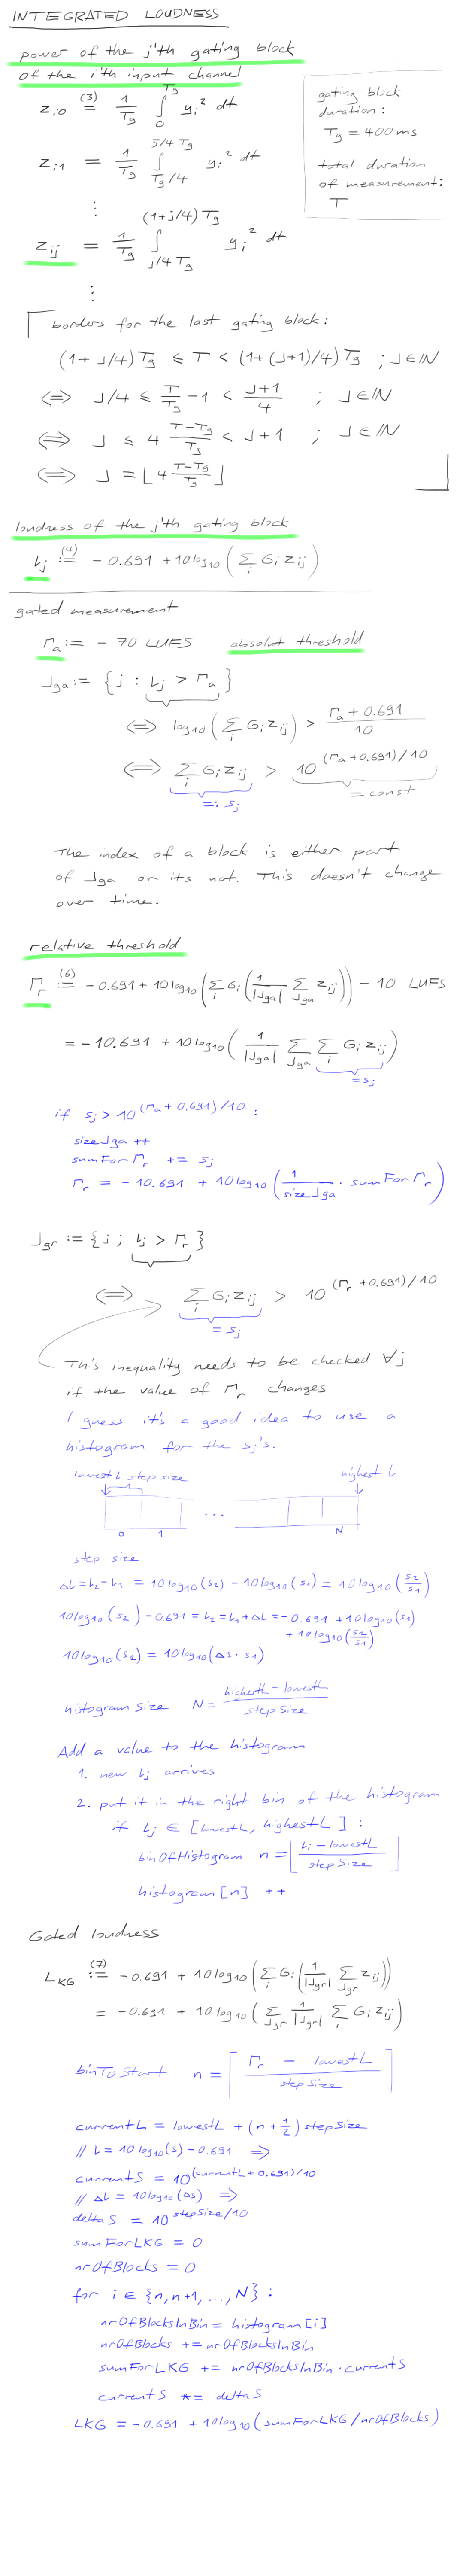 INTEGRATED LOUDNESS
power of the j'th gating block
of the i'th input channel
z_{i0} (3)= 1/T_g ∫_0^{T_g} y_i² dt
z_{i1} = 1/T_g ∫_{T_g/4}^{5/4 T_g} y_i² dt
⋮
z_{ij} = 1/T_g ∫_{j/4 T_g}^{(1+j/4) T_g} y_i² dt
⋮
gating block
duration:
T_g = 400 ms
total duration
of measurement:
T
borders for the last gating block:
(1+ J/4) T_g ≤ T < (1+ (J+1)/4) T_g ; J∈ℕ
⇔ J/4 ≤ T/T_g - 1 < (J+1)/4 ; J∈ℕ
⇔ J ≤ 4 (T-T_g)/T_g < J+1 ; J∈ℕ
⇔ J = ⌊4 (T-T_g)/T_g⌋
loudness of the j'th gating block
L_j (4):= - 0.691 + 10 log₁₀ ( ∑_i G_i z_{ij} )
gated measurement
Γ_a := - 70 LUFS absolut threshold
J_{ga} := { j : L_j > Γ_a }
⇔ log₁₀ ( ∑_i G_i z_{ij} ) > (Γ_a + 0.691)/10
⇔ ∑_i G_i z_{ij} > 10^{(Γ_a + 0.691)/10}
=: s_j = const
The index of a block is either part
of J_{ga} or its not. This doesn't change
over time.
relative threshold
Γ_r (6):= - 0.691 + 10 log₁₀ ( ∑_i G_i ( 1/|J_{ga}| ∑_{J_{ga}} z_{ij} ) ) - 10 LUFS
= - 10.691 + 10 log₁₀ ( 1/|J_{ga}| ∑_{J_{ga}} ∑_i G_i z_{ij} )
= s_j
if s_j > 10^{(Γ_a + 0.691)/10} :
sizeJga ++
sumForΓ_r += s_j
Γ_r = - 10.691 + 10 log₁₀ ( 1/sizeJga · sumForΓ_r )
J_{gr} := { j ; L_j > Γ_r }
⇔ ∑_i G_i z_{ij} > 10^{(Γ_r + 0.691)/10}
= s_j
This inequality needs to be checked ∀j
if the value of Γ_r changes
I guess it's a good idea to use a
histogram for the s_j's.
lowestL step size highest L
0 1 ... N
step size
ΔL = L₂ - L₁ = 10 log₁₀ (s₂) - 10 log₁₀ (s₁) = 10 log₁₀ (s₂/s₁)
10 log₁₀ (s₂) - 0.691 = L₂ = L₁ + ΔL = - 0.691 + 10 log₁₀ (s₁)
+ 10 log₁₀ (s₂/s₁)
10 log₁₀ (s₂) = 10 log₁₀ (Δs · s₁)
histogram size N = (highestL - lowestL)/stepSize
Add a value to the histogram
1. new L_j arrives
2. put it in the right bin of the histogram
if L_j ∈ [lowestL, highestL] :
binOfHistogram n = ⌊(L_j - lowestL)/stepSize⌋
histogram [n] ++
Gated loudness
L_{KG} (7):= - 0.691 + 10 log₁₀ ( ∑_i G_i ( 1/|J_{gr}| ∑_{J_{gr}} z_{ij} ) )
= - 0.691 + 10 log₁₀ ( ∑_{J_{gr}} 1/|J_{gr}| ∑_i G_i z_{ij} )
binToStart n = ⌈(Γ_r - lowestL)/stepSize⌉
currentL = lowestL + (n + 1/2) stepSize
// L = 10 log₁₀ (s) - 0.691 ⇒
currentS = 10^{(currentL + 0.691)/10}
// ΔL = 10 log₁₀ (Δs) ⇒
deltaS = 10^{stepSize/10}
sumForLKG = 0
nrOfBlocks = 0
for i ∈ {n, n+1, ..., N} :
nrOfBlocksInBin = histogram [i]
nrOfBlocks += nrOfBlocksInBin
sumForLKG += nrOfBlocksInBin · currentS
currentS *= deltaS
LKG = - 0.691 + 10 log₁₀ ( sumForLKG / nrOfBlocks )